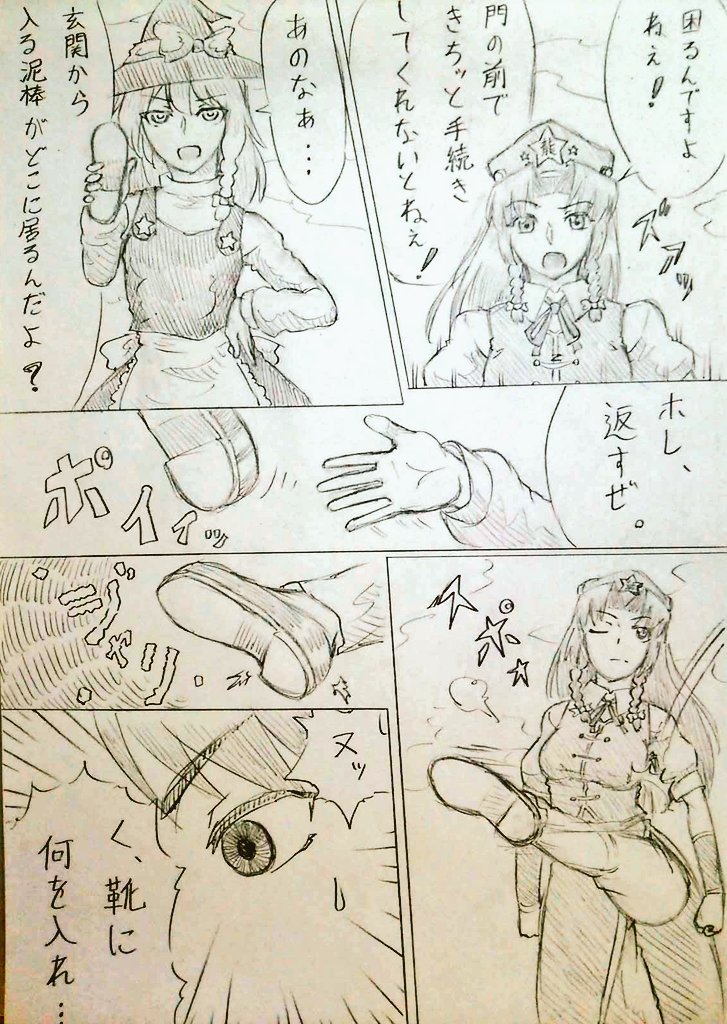 困るんですよ
ねぇ！
門の前で
きちッと手続き
してくれないとねぇ！
ズアッ
あのなぁ・・・
玄関から
入る泥棒がどこに居るんだよ？
ホレ、
返すぜ。
ポイィッ
スポッ
ジャリ
ヌッ
く、靴に
何を入れ・・・